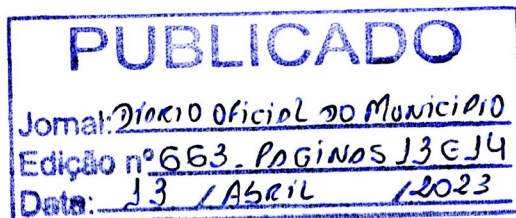 PUBLICADO
Jornal: DiáRIO OFiCiAL DO MUNiCiPiO
Edição nº 663 - PAGiNAS 13 E 14
Data: 13 / ABRiL /2023